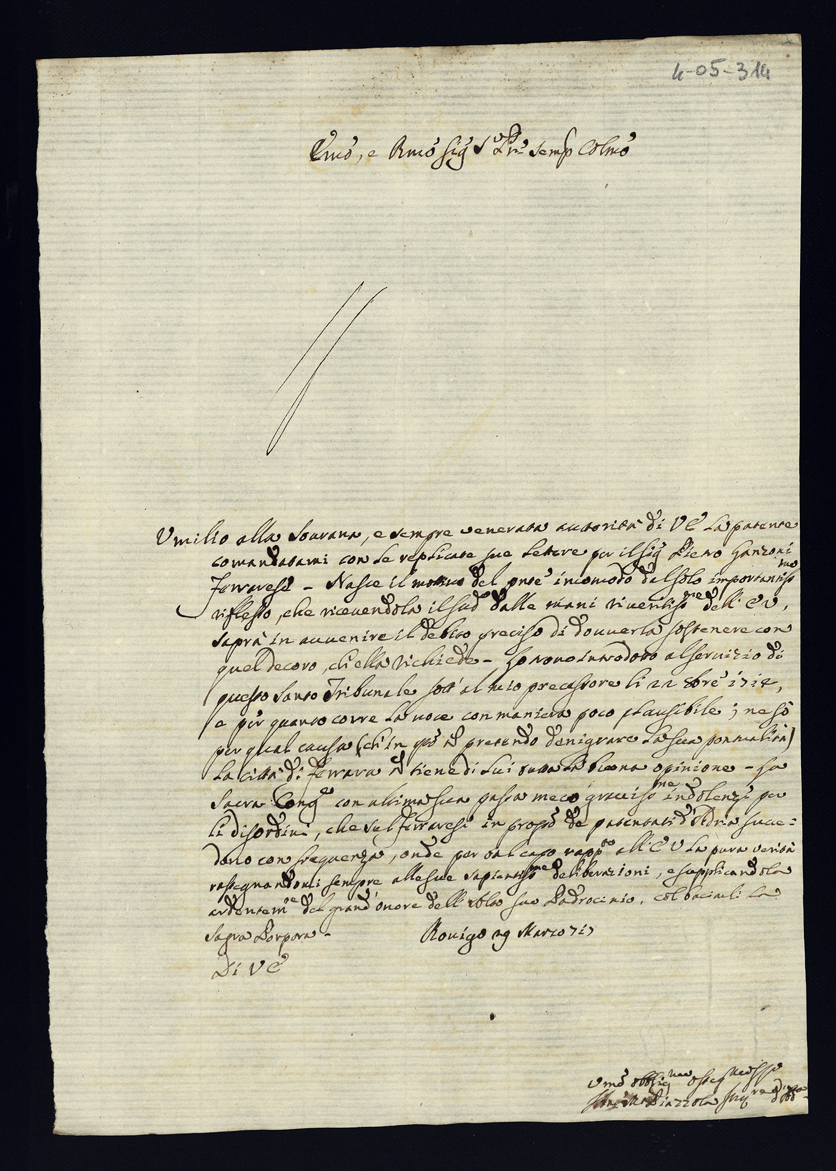 4-05-314
Emo, e Rmo Sig S Pne Semp Colmo
Umilio alla Sourana, e sempre venerata autorità di VE la patente
comandatami con le replicate sue lettere per il Sig Pietro Hanzoni
Ferrarese - Nasce il motivo del pnte incomodo dal solo importantissmo
riflesso, che ricevendola il sudo dalle mani riveritissme dell' EV,
saprà in auvenire il debito preciso di douuerla sostenere con
quel decoro, ch'ella richiede -
questo Santo Tribunale sott' al mio precessore li 22 8bre 1712,
e per quanto corre la voce con maniera poco plausibile; ne sò
per qual causa (ch'in qto pretendo denigrare la sua
la città di Ferrara tiene di lui tutta la buona opinione - La
Sacra Congne con ultima sua passa meco graziosme indolenze per
li disordini, che sul Ferrarese in propto de patentati d'Adria succe=
dono con frequenza, onde per tal capo rappto all' EV la pura verità
rassegnandomi sempre alle sue sapientissme deliberazioni, e supplicandola
ardentemte del grand' onore dell' suo Padrocinio, col baciarli la
Sagra Porpora - Rovigo 29 Marzo 717
Di VE
Umo obbligmo ossequmo